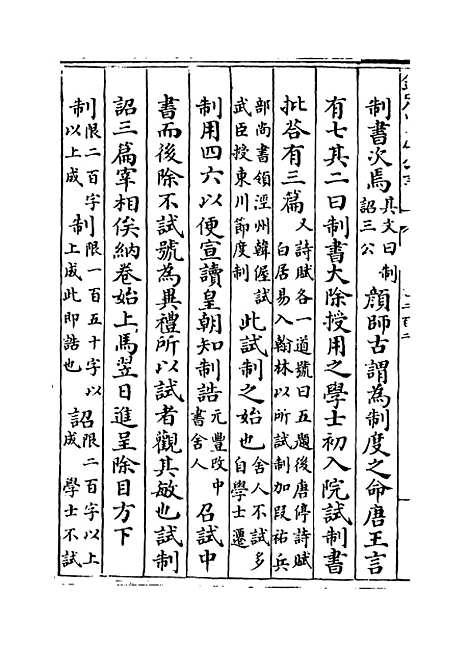 制書次焉其文曰制詔三公顏師古謂為制度之命唐王言
有七其二曰制書大除授用之學士初入院試制書
批荅有三篇又詩賦各一道號曰五題後唐停詩賦白居易入翰林以所試制加段祐兵
部尚書領涇州韓偓試武臣授東川節度制此試制之始也舍人不試多自學士遷
制用四六以便宣讀皇朝知制誥元豐改中書舍人召試中
書而後除不試號為異禮所以試者觀其敏也試制
詔三篇宰相俟納卷始上馬翌日進呈除目方下
制限二百字以上成制限一百五十字以上成此即誥也詔限二百字以上成學士不試